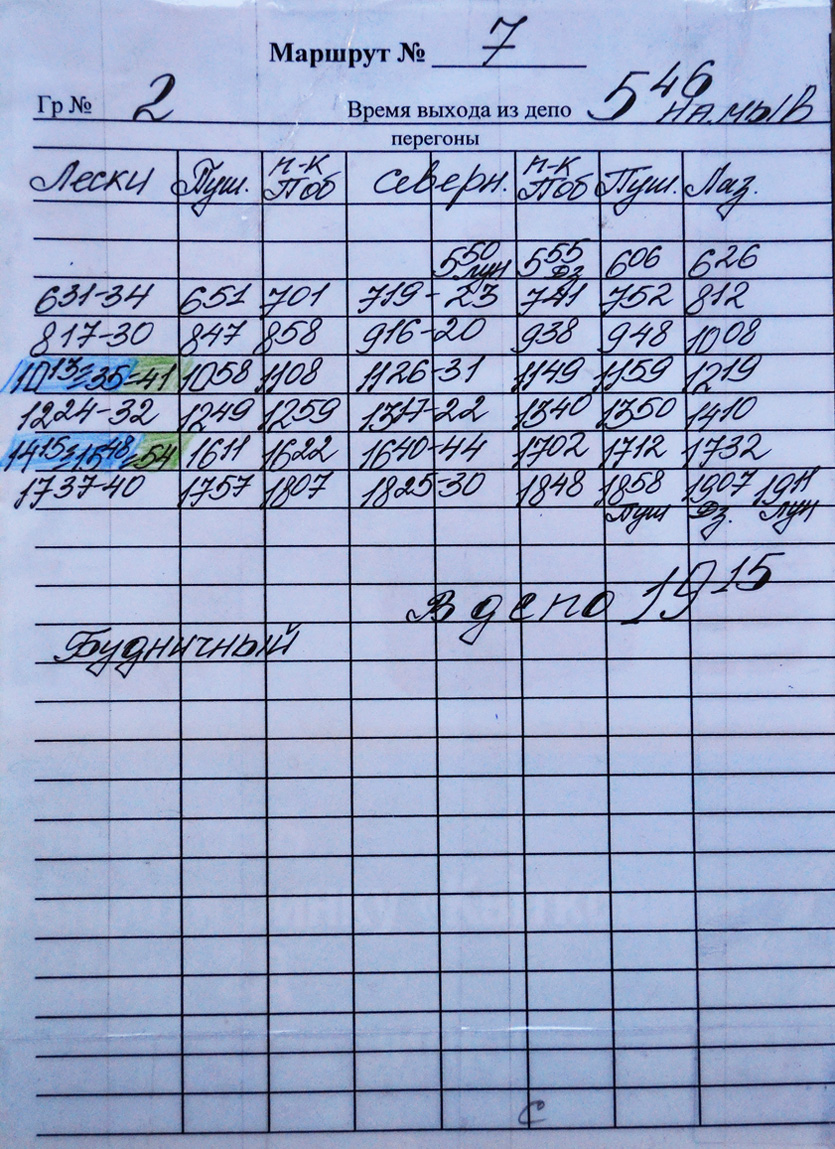 Маршрут № 7
Гр № 2 Время выхода из депо 5 46 на мыв
перегоны
Лески Пуш. п-к Поб Северн. п-к Поб Пуш. Лаз.
5 50 Лун 5 55 Дз 6 06 6 26
6 31-34 6 51 7 01 7 19-23 7 41 7 52 8 12
8 17-30 8 47 8 58 9 16-20 9 38 9 48 10 08
10 13-35-41 10 58 11 08 11 26-31 11 49 11 59 12 19
12 24-32 12 49 12 59 13 17-22 13 40 13 50 14 10
14 15-15 48-54 16 11 16 22 16 40-44 17 02 17 12 17 32
17 37-40 17 57 18 07 18 25-30 18 48 18 58 19 07 19 11
Пуш Дз. Лун
В депо 19 15
Будничный
с